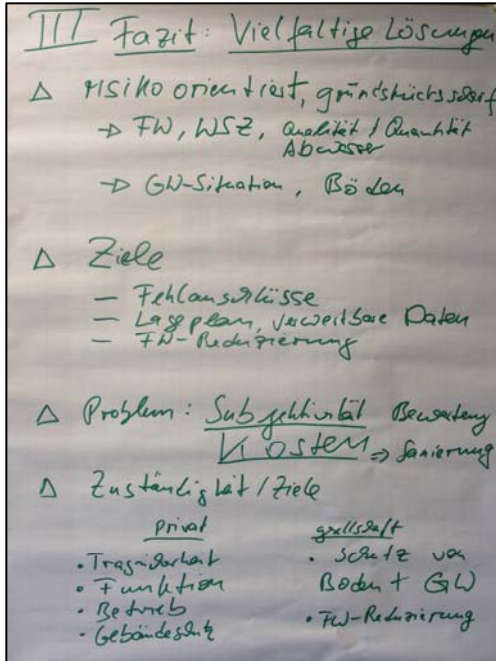 III Fazit: Vielfältige Lösungen
△ risikoorientiert, grundstücksscharf
→ FW, WSZ, Qualität / Quantität
Abwasser
→ GW-Situation, Böden
△ Ziele
– Fehlanschlüsse
– Lageplan, verwertbare Daten
– FW-Reduzierung
△ Problem: Subjektivität Bewertung
Kosten ⇒ Sanierung
△ Zuständigkeit / Ziele
privat
• Tragsicherheit
• Funktion
• Betrieb
• Gebäudeschutz
gesellschaft
• Schutz von
Boden + GW
• FW-Reduzierung